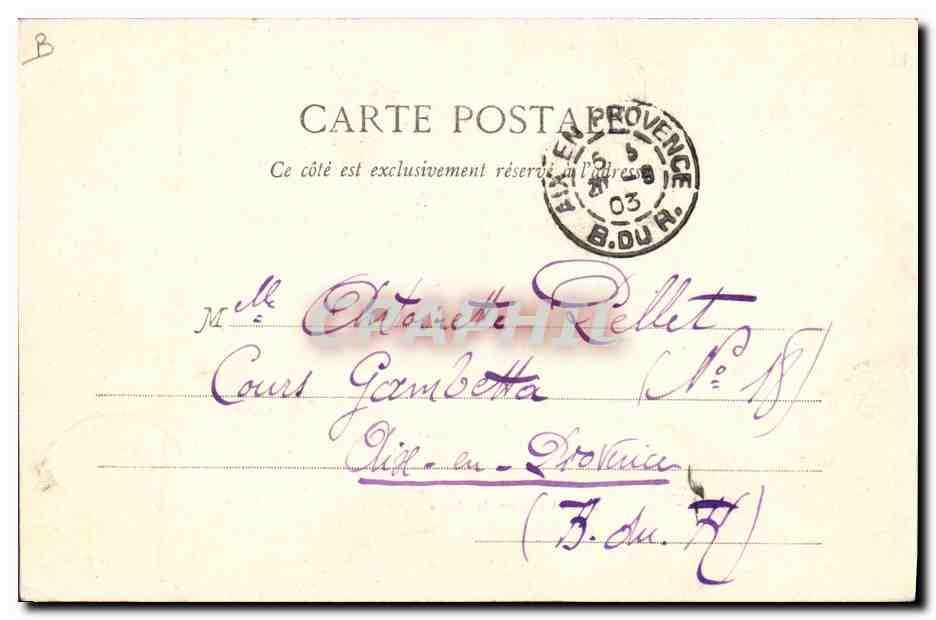 B
CARTE POSTALE
Ce côté est exclusivement réservé à l'adresse
AIX-EN-PROVENCE
5 5
03
B. DU R.
M lle Antoinette Pellet
CPAPHIL
Cours Gambetta (No 18)
Aix-en-Provence
(B. du R)